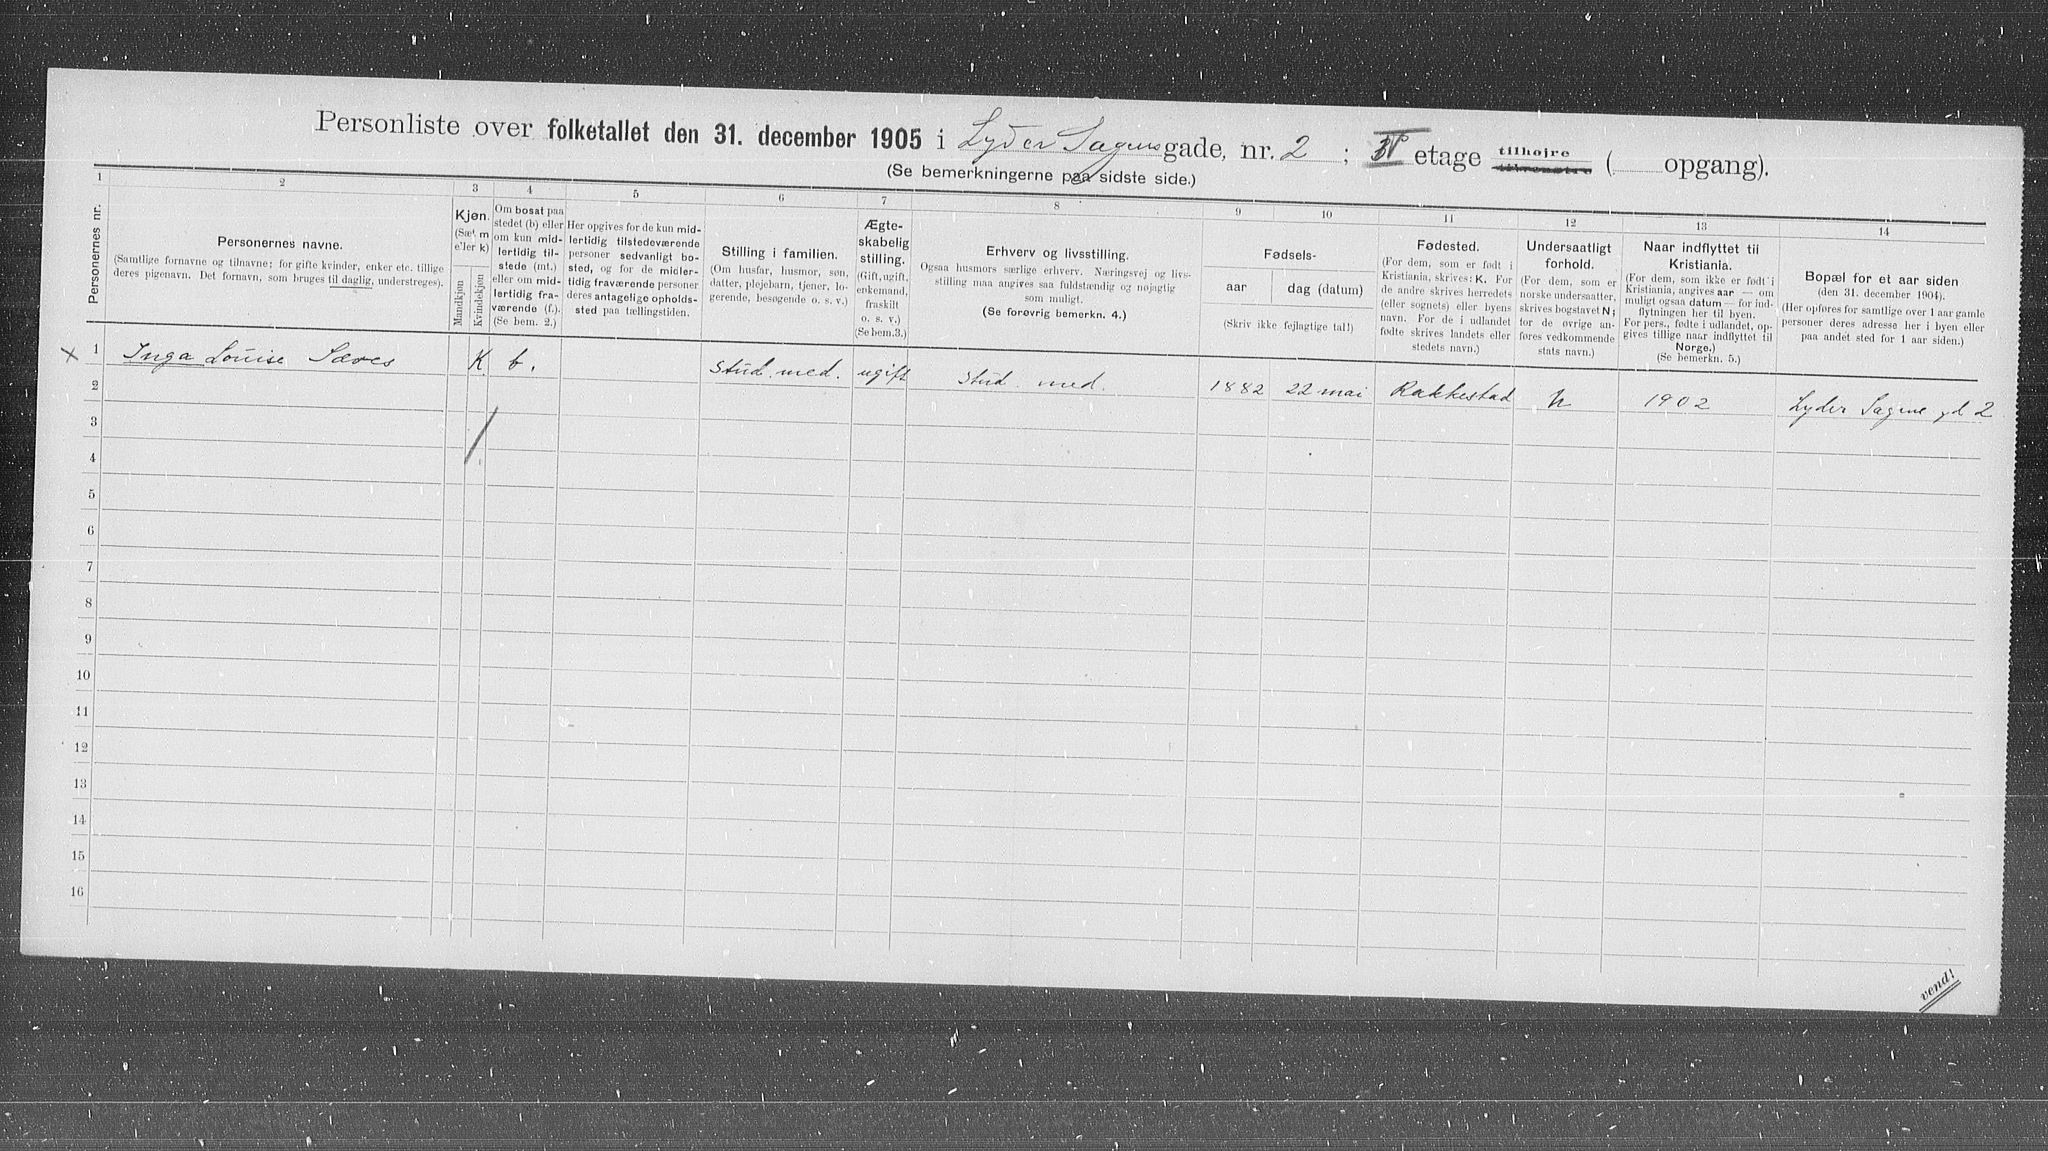 Personliste over folketallet den 31. december 1905 i Lyder Sagens gade, nr. 2 ; etage tilhøjre ( opgang).
(Se bemerkningerne paa sidste side.)
1 2 3 4 5 6 7 8 9 10 11 12 13 14
Personernes nr.
Personernes navne.
(Samtlige fornavne og tilnavne; for gifte kvinder, enker etc. tillige
deres pigenavn. Det fornavn, som bruges til daglig, understreges).
Kjøn.
(Sæt m
eller k)
Mandkjøn
Kvindekjøn
Om bosat paa
stedet (b) eller
om kun mid-
lertidig til-
stede (mt.)
eller om mid-
lertidig fra-
værende (f.).
(Se bem. 2.)
Her opgives for de kun mid-
lertidig tilstedeværende
personer sedvanligt bo-
sted, og for de midler-
tidig fraværende personer
deres antagelige opholds-
sted paa tællingstiden.
Stilling i familien.
(Om husfar, husmor, søn,
datter, plejebarn, tjener, lo-
gerende, besøgende o. s. v.)
Ægte-
skabelig
stilling.
(Gift, ugift,
enkemand,
fraskilt
o. s. v.)
(Se bem.3.)
Erhverv og livsstilling.
Ogsaa husmors særlige erhverv. Næringsvej og livs-
stilling maa angives saa fuldstændig og nøjagtig
som muligt.
(Se forøvrig bemerkn. 4.)
Fødsels-
aar
dag (datum)
(Skriv ikke fejlagtige tal!)
Fødested.
(For dem, som er født i
Kristiania, skrives: K. For
de andre skrives herredets
(eller sognets) eller byens
navn. For de i udlandet
fødte skrives landets eller
stedets navn.)
Undersaatligt
forhold.
(For dem, som er
norske undersaatter,
skrives bogstavet N;
for de øvrige an-
føres vedkommende
stats navn.)
Naar indflyttet til
Kristiania.
(For dem, som ikke er født i
Kristiania, angives aar — om
muligt ogsaa datum — for ind-
flytningen her til byen.
For pers., fødte i udlandet, op-
gives tillige naar indflyttet til
Norge.)
(Se bemerkn. 5.)
Bopæl for et aar siden
(den 31. december 1904).
(Her opføres for samtlige over 1 aar gamle
personer deres adresse her i byen eller
paa andet sted for 1 aar siden.)
x 1 Inga Louise K b. stud. med. ugift stud. med. 1882 22 mai Rakkestad N 1902 Lyder Sagens gd 2
2
3
4
5
6
7
8
9
10
11
12
13
14
15
16
vend!